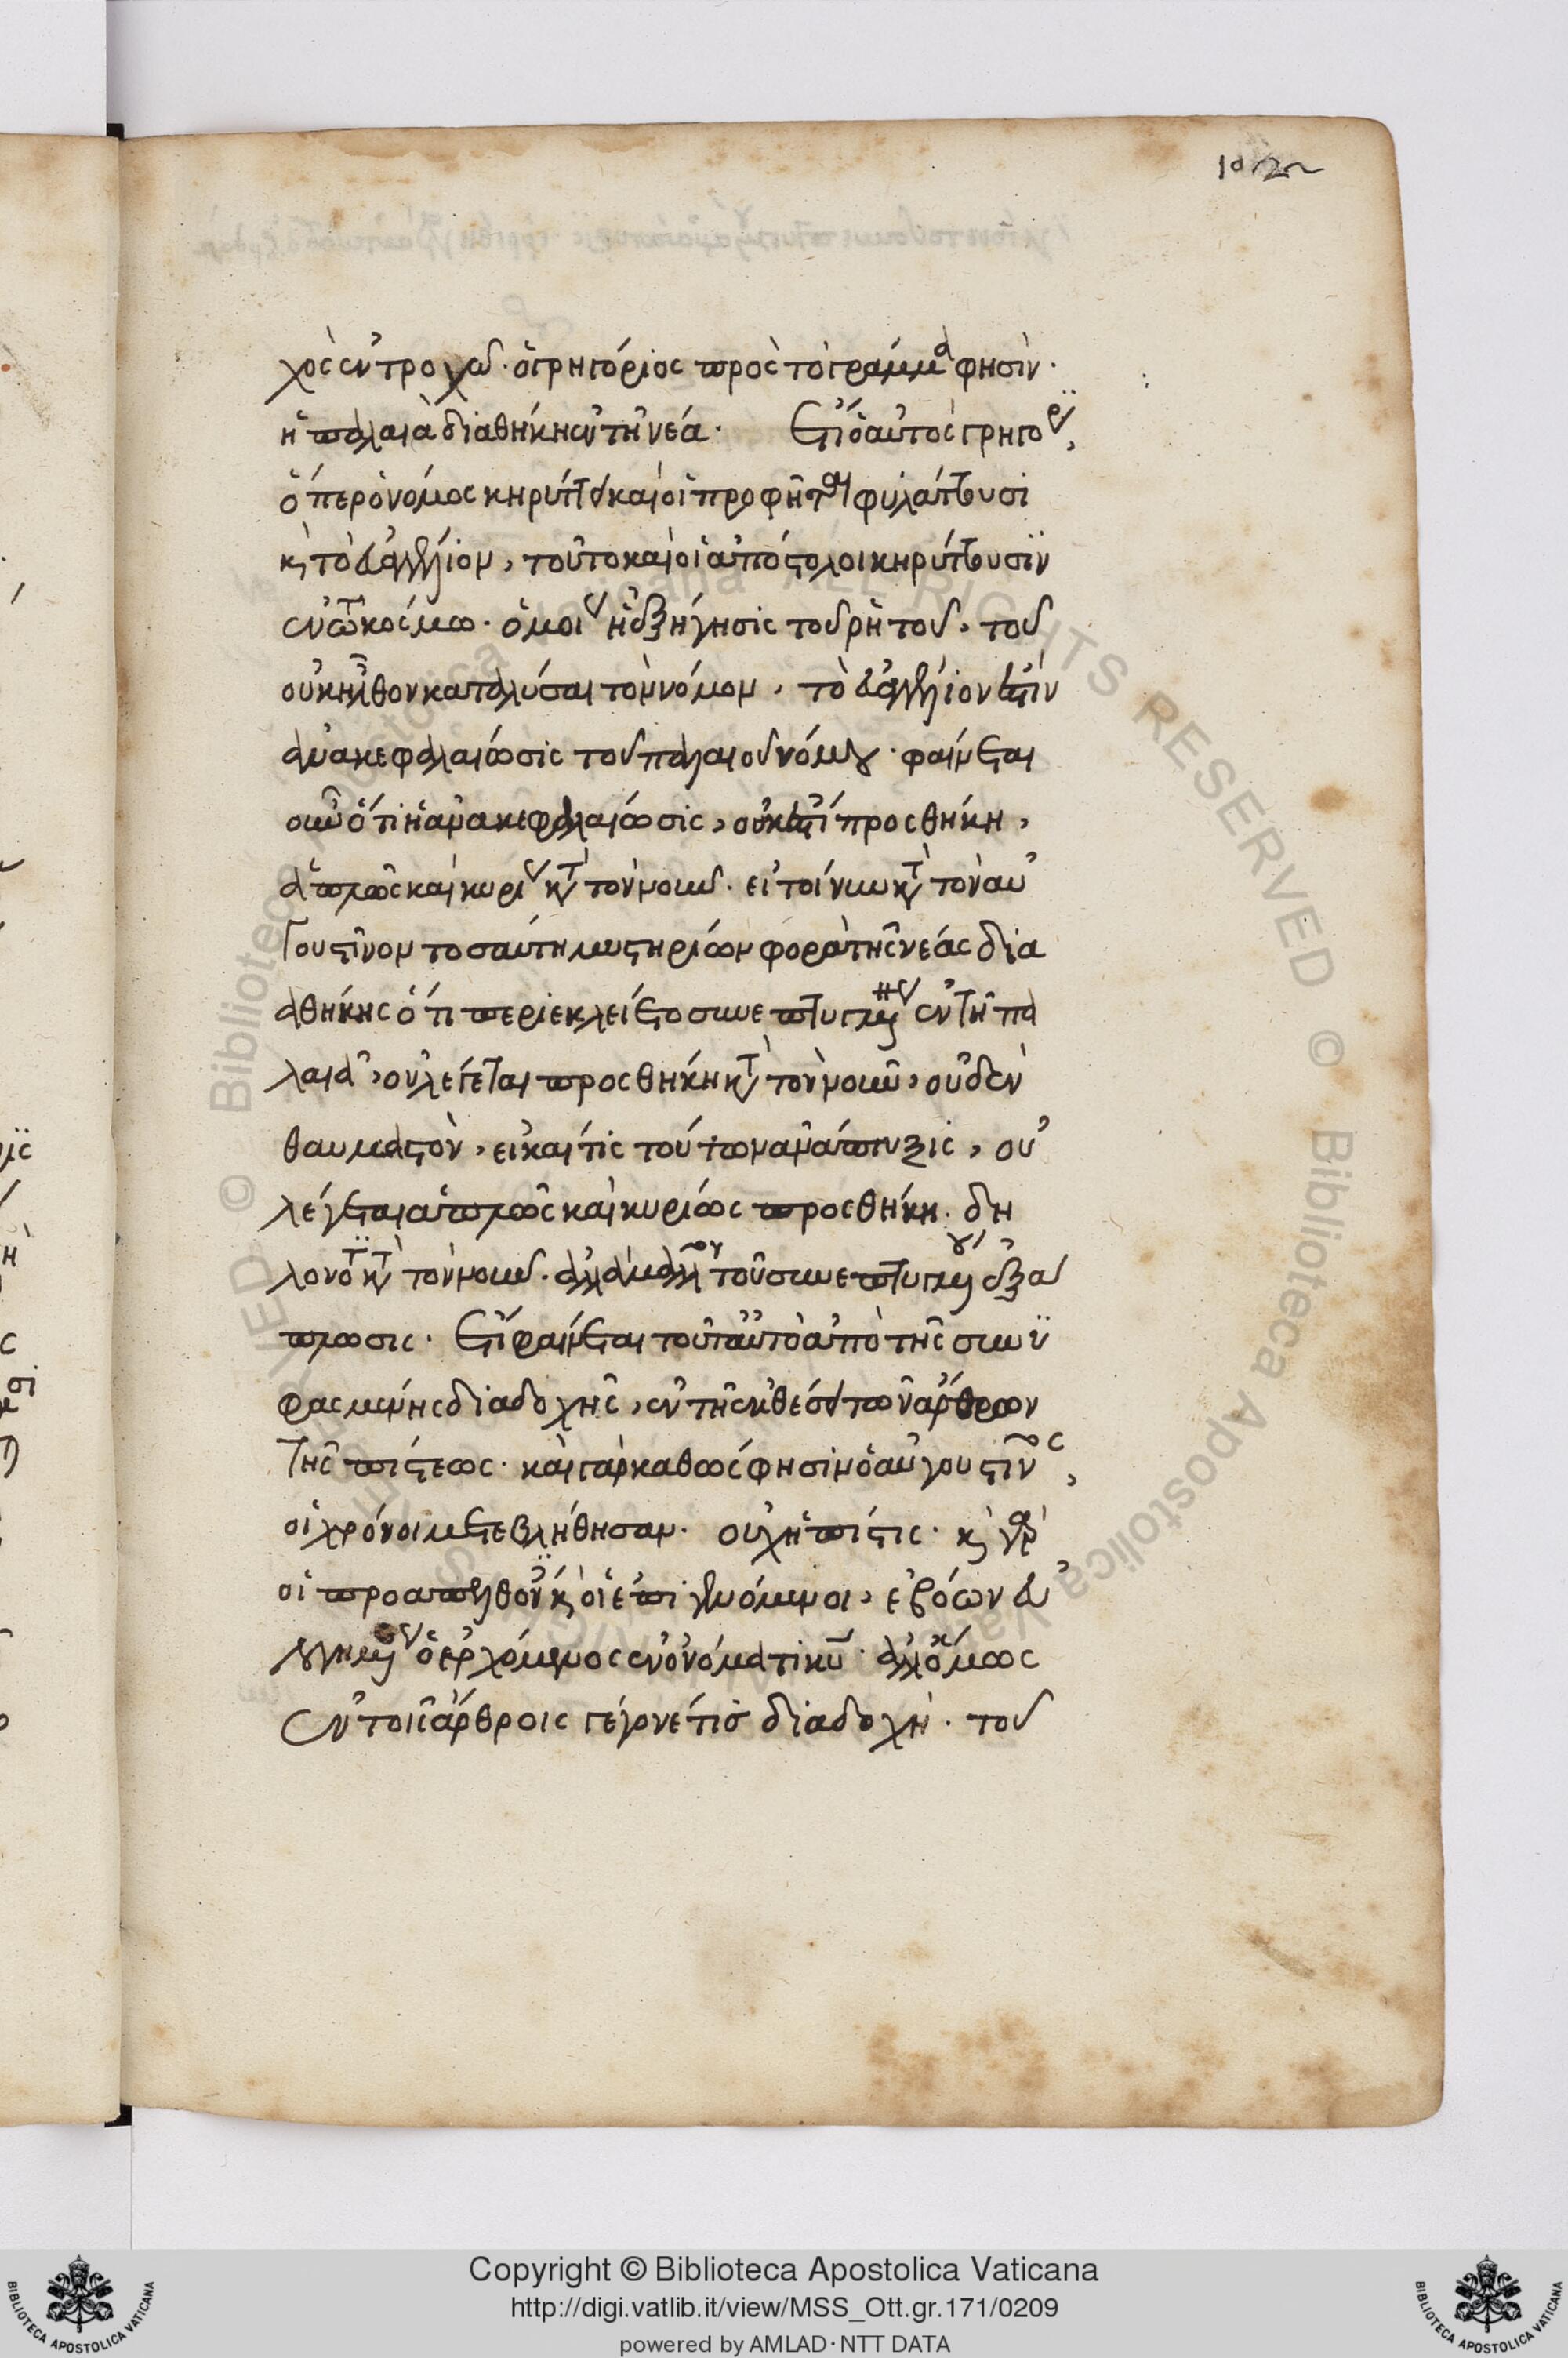 102
χὸς ἐν τροχῷ· ὁ γρηγόριος πρὸς τὸ γράμμα φησὶν·
ἡ παλαιὰ διαθήκη ἐν τῇ νέᾳ. Ἔτι ὁ αὐτὸς γρηγόρι,
ὅπερ ὁ νόμος κηρύττει καὶ οἱ προφῆται φυλάττουσι
κ τὸ εὐαγγέλιον, τοῦτο καὶ οἱ ἀπόστολοι κηρύττουσιν
ἐν τῶ κόσμω. ὁμοίως ἡ ἐξήγησις τοῦ ῥητοῦ, τοῦ
οὐκ ἦλθον καταλύσαι τὸν νόμον, τὸ εὐαγγέλιον ἐστὶν
ἀνακεφαλαίωσις τοῦ παλαιοῦ νόμου· φαίνεται
οὖν ὅτι ἡ ἀνακεφαλαίωσις, οὐκ ἐστὶ προσθήκη,
ἁπλῶς καὶ κυρίως κατὰ τὸν νοῦν. εἰ τοίνυν κατὰ τὸν αὐ
γουστῖνον τοσαύτη μυστηρίων φορὰ τῆς νέας δια
θήκης ὅτι περιεκλείετο συνεπτυγμένως ἐν τῇ πα
λαιᾷ, οὐ λέγεται προσθήκη κατὰ τὸν νοῦν, οὐδὲν
θαυμαστὸν, εἰ καί τις τούτων ἀνάπτυξις, οὐ
λέγεται ἁπλῶς καὶ κυρίως προσθήκη. δη
λονότι κατὰ τὸν νοῦν. ἀλλὰ μᾶλλον τοῦ συνεπτυγμένου ἐξά
πλωσις. Ἔτι φαίνεται τοῦτ' αὐτὸ ἀπὸ τῆς συνυ
φασμένης διαδοχῆς, ἐν τῆς ἐκθέσει τῶν ἄρθρων
τῆς πίστεως. καὶ γὰρ καθώς φησιν ὁ αὐγουστῖνος,
οἱ χρόνοι μετεβλήθησαν. οὐχ ἡ πίστις. κ γὰρ
οἱ προαπελθόντες κ οἱ ἐπιγενόμενοι, ἐβόων εὐ
λογημένος ὁ ἐρχόμενος ἐν ὀνόματι κυ. ἀλλ' ὅμως
ἐν τοῖς ἄρθροις γέγονέ τις διαδοχή. τοῦ
Copyright © Biblioteca Apostolica Vaticana
http://digi.vatlib.it/view/MSS_Ott.gr.171/0209
powered by AMLAD · NTT DATA